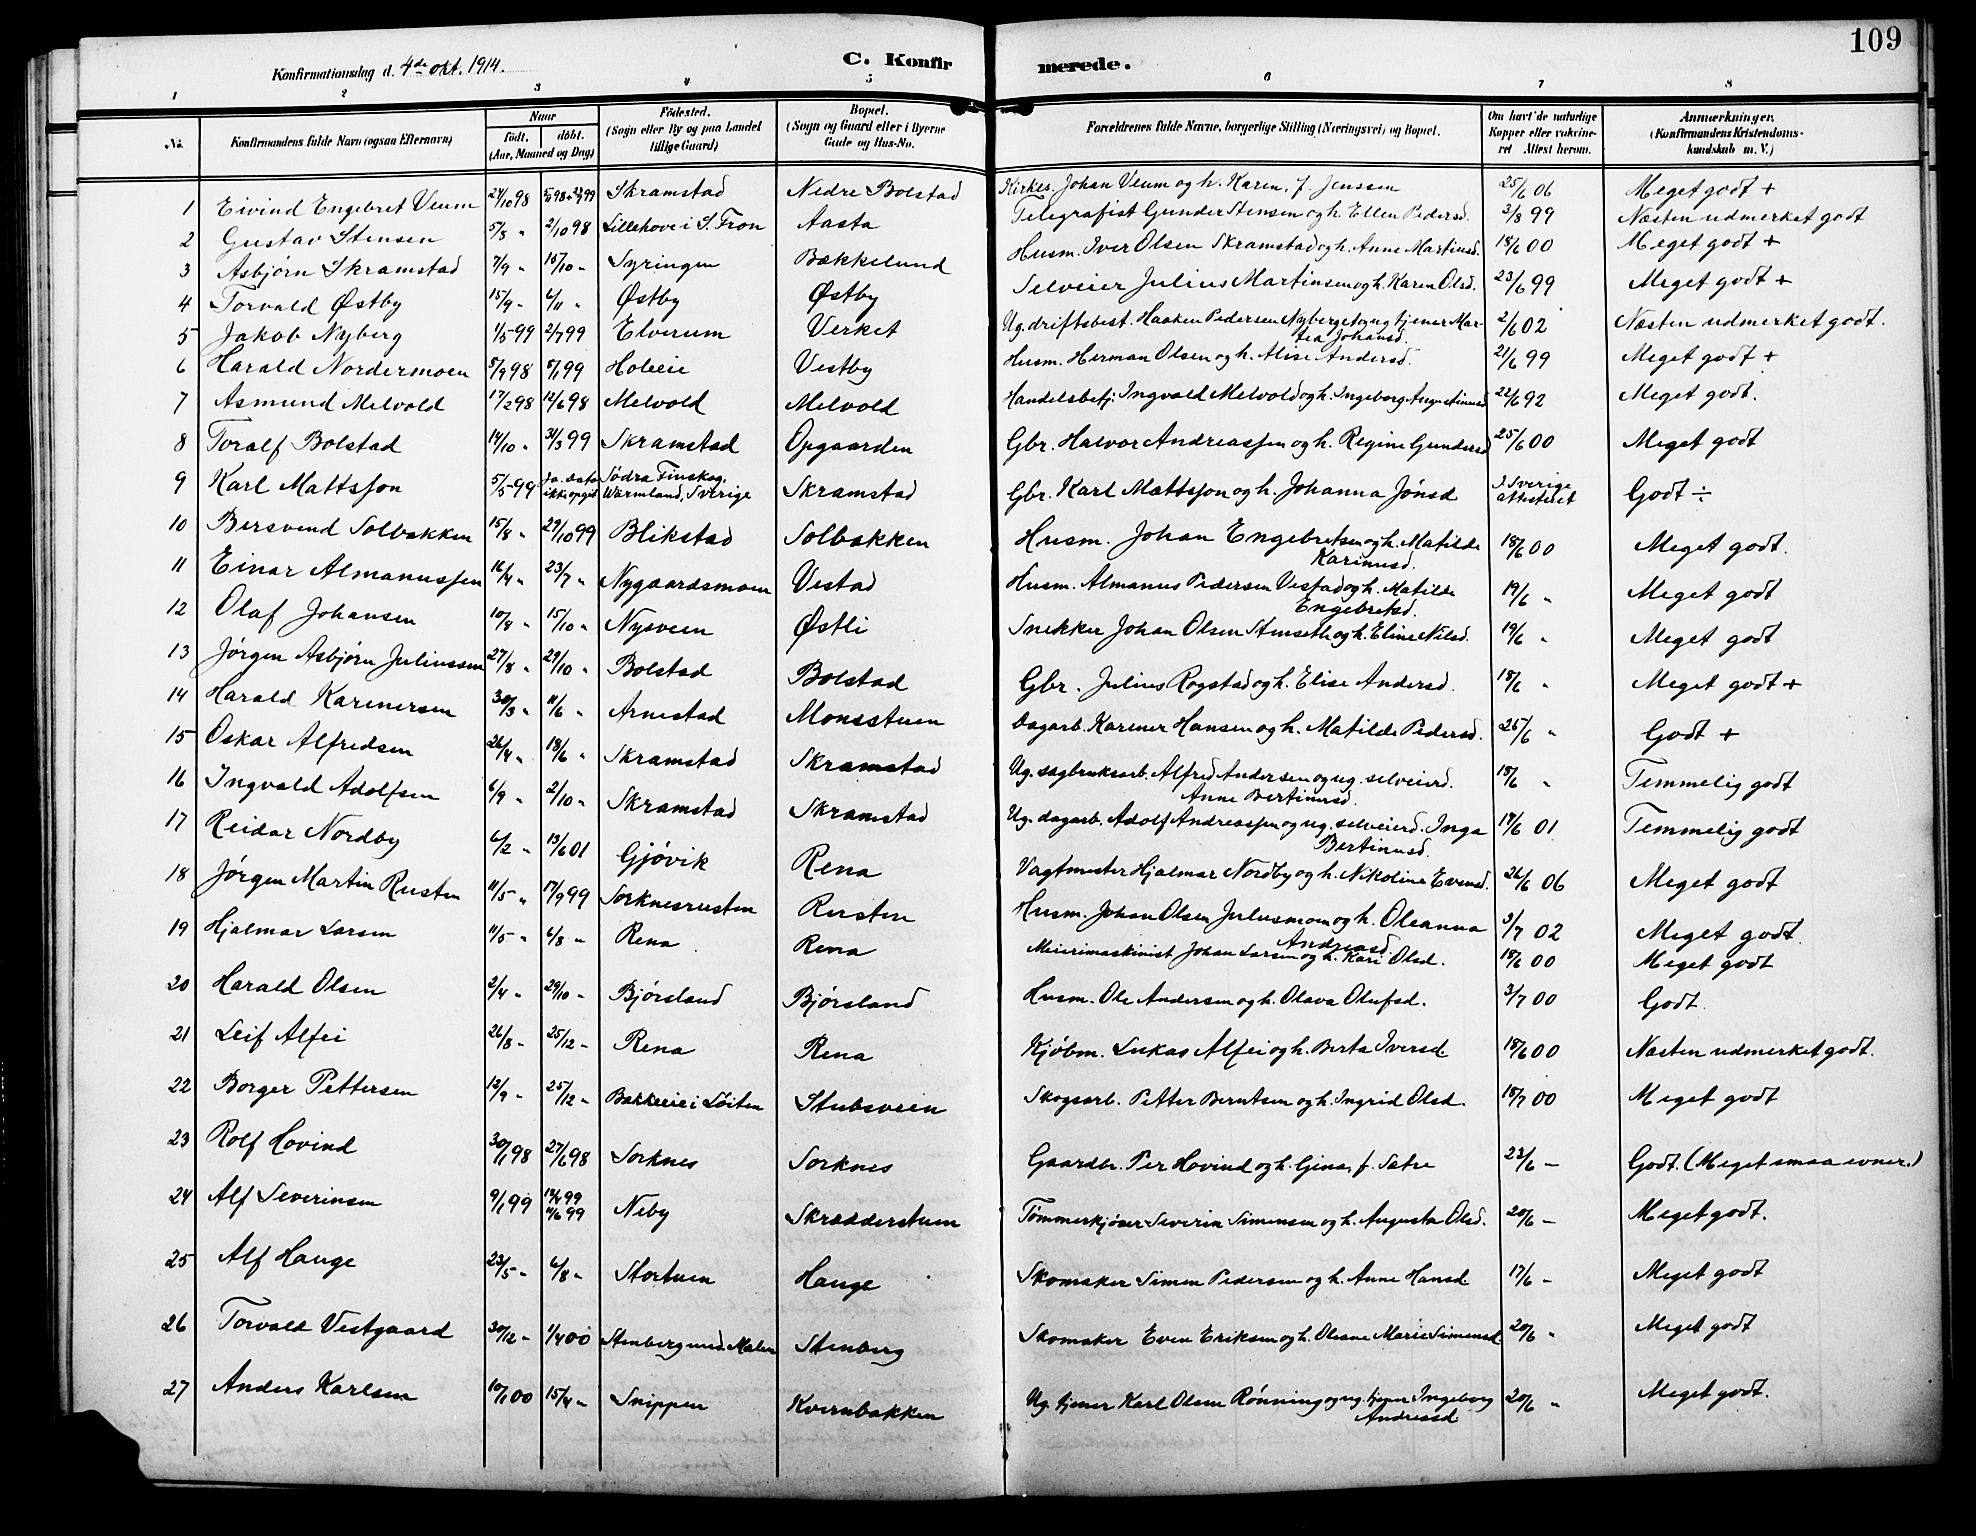 109
Konfirmationsdag d. 4de okt. 1914.
C. Konfirmerede.
1 2 3 4 5 6 7 8
No. Konfirmandens fulde Navn (ogsaa Efternavn) Naar født. døbt. (Aar, Maaned og Dag) Fødested. (Sogn eller By og paa Landet tillige Gaard) Bopæl. (Sogn og Gaard eller i Byerne Gade og Hus-No. Forældrenes fulde Navne, borgerlige Stilling (Næringsvei) og Bopæl. Om havt de naturlige Kopper eller vakcineret Attest herom. Anmærkninger. (Konfirmandens Kristendomskundskab m. V.)
1 Eivind Engebret Veum 24/10 98 Skramstad Nedre Bolstad Kirkes. Johan Veum og h. Karen, f. Jenssen 25/6 06 Meget godt +
2 Gustav Stensen 5/8 " 2/10 98 Lillehove i S. Fron Aasta Telegrafist Gunder Stensen og h. Ellen Pedersd. 3/8 99 Næsten udmerket godt
3 Asbjørn Skramstad 7/9 " 15/10 " Syringen Bækkelund Husm. Iver Olsen Skramstad og h. Anne Martinsd. 18/6 00 Meget godt +
4 Torvald Østby 15/9 " 6/11 " Østby Østby Selveier Julius Martinsen og h. Karen Olsd. 23/6 99 Meget godt +
5 Jakob Nyberg 1/5 99 2/7 99 Elverum Verket Ug. driftsbest. Haaken Pedersen Nyberget og ug tjener Martea Johansd. 2/6 02 Næsten udmerket godt.
6 Harald Nordermoen 5/9 98 8/1 99 Holeeie Vestby Husm. Herman Olsen og h. Alise Andersd. 21/6 99 Meget godt +
7 Asmund Melvold 17/2 98 12/6 98 Melvold Melvold Handelsbetj. Ingvald Melvold og h. Ingeborg Augustinusd 22/6 92 Meget godt.
8 Toralf Bolstad 14/10 " 31/3 99 Skramstad Opgaarden Gbr. Halvor Andreassen og h. Regine Gundersd 25/6 00 Meget godt
9 Karl Mattsson 5/5 99 Ja. dato ikke opgit Södra Finskog, Wärmland, Sverige Skramstad Gbr. Karl Mattsson og h. Johanna Jönsd I Sverige attesteret Godt ÷
10 Bersvend Solbakken 15/8 " 29/10 99 Blikstad Solbakken Husm. Johan Engebretsen og h. Matilde Karinusd. 18/6 00 Meget godt.
11 Einar Almanussen 16/4 " 23/7 " Nygaardsmoen Vestad Husm. Almanus Pedersen Vestad og h. Matilde Engebretsd. 19/6 " Meget godt
12 Olaf Johansen 10/8 " 15/10 " Nysveen Østli Snekker Johan Olsen Stenseth og h. Eline Nilsd. 19/6 " Meget godt
13 Jørgen Asbjørn Juliussen 27/8 " 29/10 " Bolstad Bolstad Gbr. Julius Rogstad og h. Elise Andersd. 18/6 " Meget godt +
14 Harald Karenersen 30/3 " 11/6 " Arnestad Monsstuen Dagarb. Karener Hansen og h. Matilde Pedersd. 25/6 " Godt +
15 Oskar Alfredsen 26/4 " 18/6 " Skramstad Skramstad Ug. sagbruksarb. Alfred Andersen og ug. selveierd. Anne Bertinusd. 18/6 " Temmelig godt
16 Ingvald Adolfsen 6/9 " 2/10 " Skramstad Skramstad Ug. dagarb. Adolf Andreassen og ug. selveierd. Inga Bertinusd. 19/6 01 Temmelig godt
17 Reidar Nordby 6/2 " 13/6 01 Gjøvik Rena Vagtmester Hjalmar Nordby og h. Nikoline Evensd. 26/6 06 Meget godt
18 Jørgen Martin Rusten 11/5 " 17/9 99 Sorknesrusten Rusten Husm. Johan Olsen Julusmoen og h. Oleanna Andreasd 3/7 02 Meget godt.
19 Hjalmar Larsen 11/5 " 6/8 " Rena Rena Meierimaskinist Johan Larsen og h. Kari Olsd. 18/6 00 Meget godt
20 Harald Olsen 2/4 " 29/10 " Bjørsland Bjørsland Husm. Ole Andersen og h. Olava Olufsd. 3/7 00 Godt.
21 Leif Alfei 26/8 " 25/12 " Rena Rena Kjøbm. Lukas Alfei og h. Berta Iversd 18/6 00 Næsten udmerket godt.
22 Borger Pettersen 12/9 " 25/12 " Bakkeeie i Løiten Stubsveen Skogsarb. Petter Berntsen og h. Ingrid Olsd. 18/7 00 Meget godt
23 Rolf Hovind 30/1 98 27/6 98 Sorknes Sorknes Gaardbr. Per Hovind og h. Gina, f. Sætre 23/6 — Godt. (Meget smaa evner.)
24 Alf Severinsen 9/1 99 11/6 99 Neby Skrædderstuen Tømmerkjører Severin Simensen og h. Augusta Olsd. 20/6 — Meget godt.
25 Alf Hauge 23/5 " 6/8 " Stortuen Hauge Skomaker Simen Pedersen og h. Anne Hansd 17/6 — Meget godt
26 Torvald Vestgaard 30/12 " 1/4 00 Stenberg Stenberg Skomaker Even Eriksen og h. Olesne Marie Simensd. 20/6 " Meget godt
27 Anders Karlsen 10/1 00 15/4 " Snippen Kvernbakken Ug. tjener Karl Olsen Rønning og ug. tjener Ingeborg Andreasd 20/6 " Meget godt.